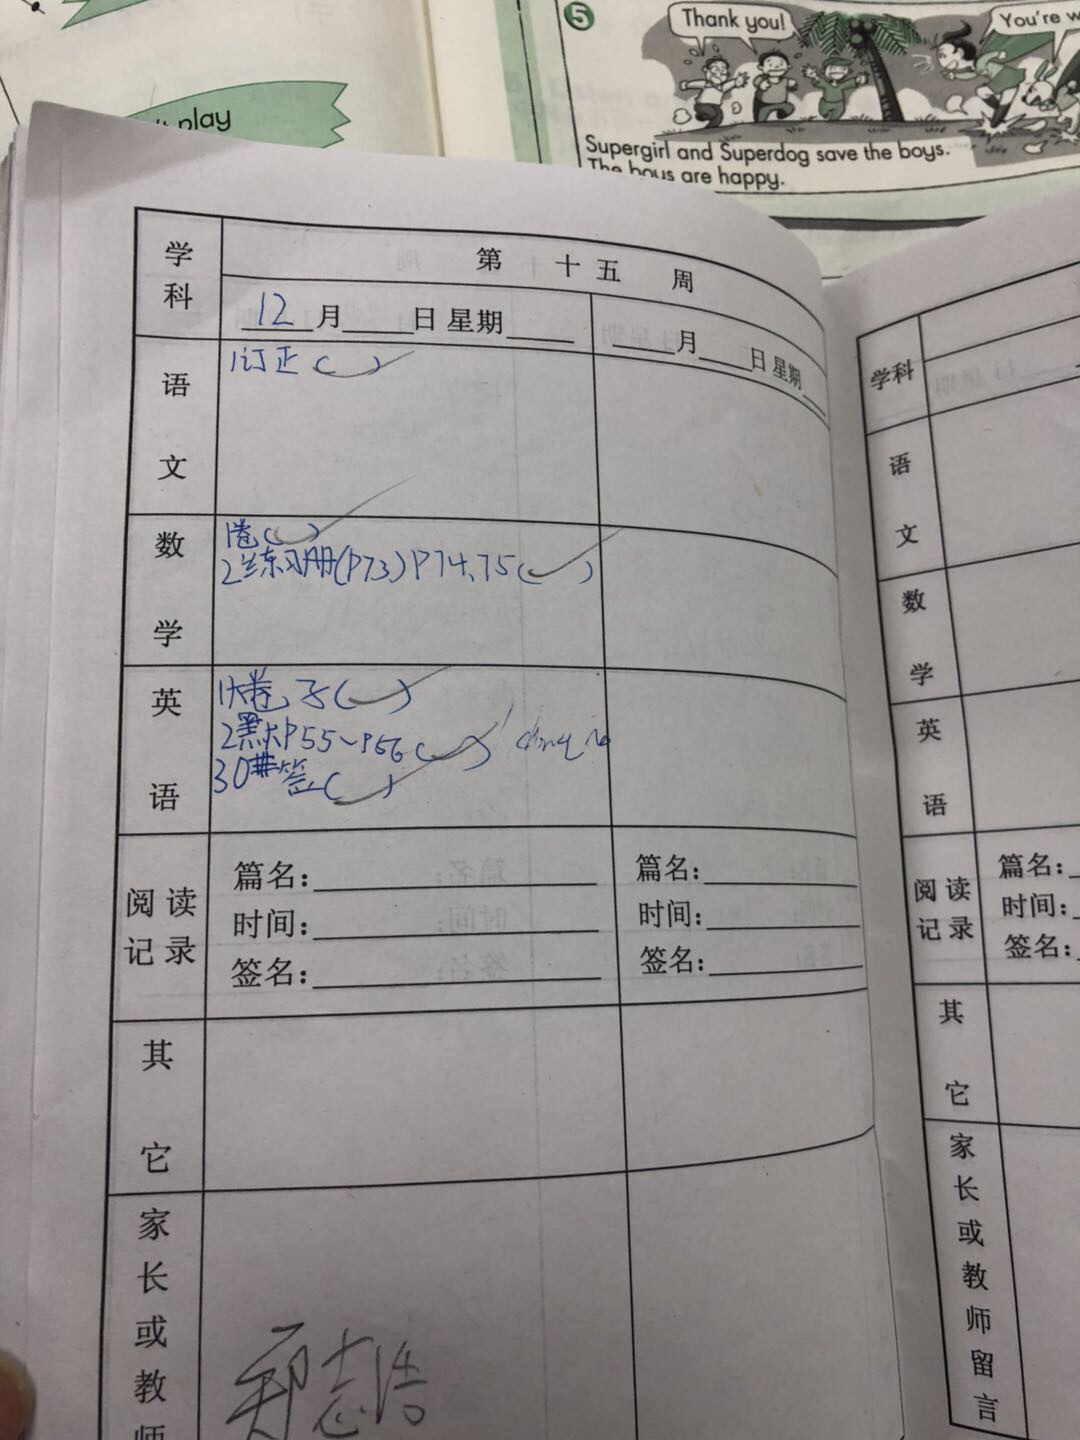 5
Thank you!
You're w
Supergirl and Superdog save the boys.
The boys are happy.
play
学科
第 十五 周
12月 日 星期
月 日 星期
语文
1订正( )
数学
1卷( )
2练习册(P73)P74.75( )
英语
1大卷,子( )
2黑大P55~P56( )
签( )
阅读记录
篇名:
时间:
签名:
篇名:
时间:
签名:
其它
家长或教师
郑志浩
学科
语文
数学
英语
阅读记录
篇名:
时间:
签名:
其它
家长或教师留言